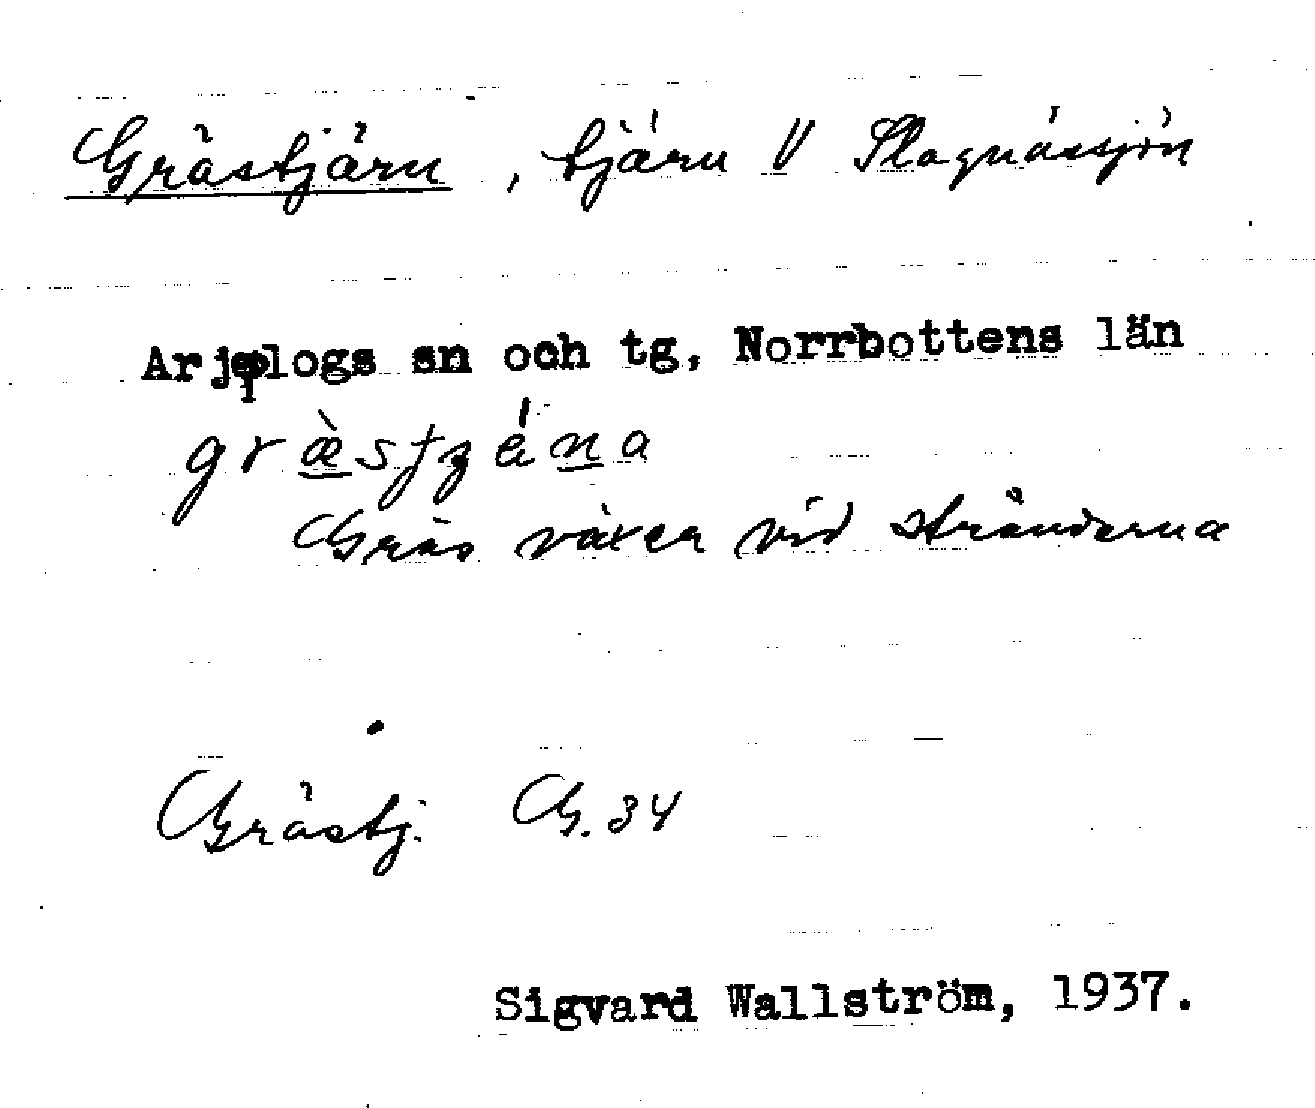 Grästjärn, tjärn V Slagnässjön
Arjeplogs sn och tg, Norrbottens län
græ̀stʒèna
Gräs växer vid stränderna
Grästj. G. 34
Sigvard Wallström, 1937.